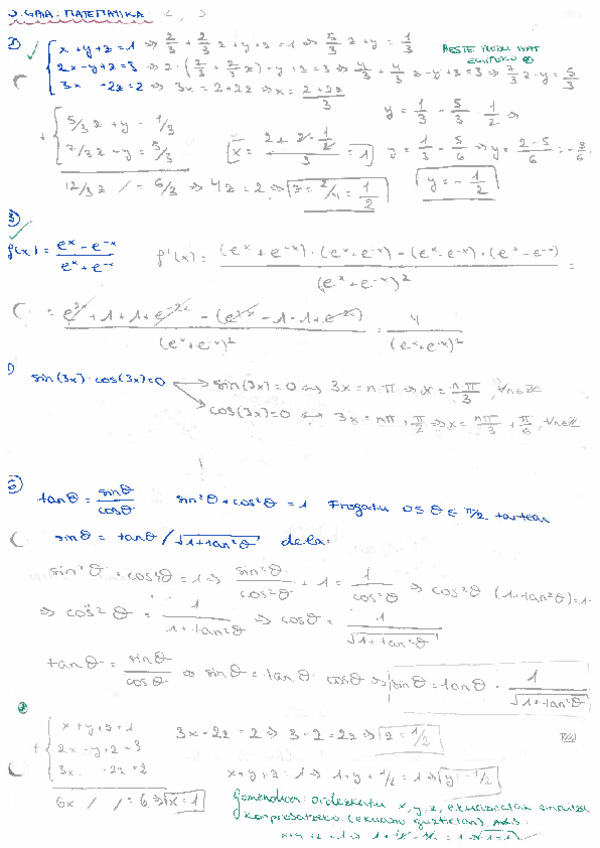 0. GAIA: MATEMATIKA
BESTE MODU BAT
x + y + z = 1 ⇒ 2/3 + 2/3 z + y + z = 1 ⇒ 5/3 z + y = 1/3
2x - y + z = 3 ⇒ 2 · (2/3 + 2/3 z) - y + z = 3 ⇒ 4/3 + 4/3 z - y + z = 3 ⇒ 7/3 z - y = 5/3
3x - 2z = 2 ⇒ 3x = 2 + 2z ⇒ x = (2 + 2z)/3
y = 1/3 - 5/3 · 1/2 ⇒
+ { 5/3 z + y = 1/3
7/3 z - y = 5/3
y = 1/3 - 5/6 ⇒ y = (2 - 5)/6 = -3/6
12/3 z / = 6/3 ⇒ 4z = 2 ⇒ z = 2/4 = 1/2
y = -1/2
f(x) = (e^x - e^-x)/(e^x + e^-x)
f'(x) = ((e^x + e^-x) · (e^x + e^-x) - (e^x - e^-x) · (e^x - e^-x))/(e^x + e^-x)^2 =
= (e^2x + 1 + 1 + e^-2x - (e^2x - 1 - 1 + e^-2x))/(e^x + e^-x)^2 = 4/(e^x + e^-x)^2
sin(3x) · cos(3x) = 0
sin(3x) = 0 ⇔ 3x = n·π ⇒ x = n·π/3, ∀n∈Z
cos(3x) = 0 ⇔ 3x = nπ + π/2 ⇒ x = nπ/3 + π/6, ∀n∈Z
tanθ = sinθ/cosθ sin²θ + cos²θ = 1 Frogatu 0 ≤ θ ≤ π/2 tartean
sinθ = tanθ/√(1+tan²θ) dela:
sin²θ + cos²θ = 1 ⇒ sin²θ/cos²θ + 1 = 1/cos²θ ⇒ cos²θ · (1+tan²θ) = 1
⇒ cos²θ = 1/(1+tan²θ) ⇒ cosθ = 1/√(1+tan²θ)
tanθ = sinθ/cosθ ⇒ sinθ = tanθ · cosθ ⇒ sinθ = tanθ · 1/√(1+tan²θ)
+ { x + y + z = 1
2x - y + z = 3
3x - 2z = 2
3x - 2z = 2 ⇒ 3 - 2 = 2z ⇒ z = 1/2
x + y + z = 1 ⇒ 1 + y + 1/2 = 1 ⇒ y = -1/2
6x / / = 6 ⇒ x = 1
Gomendioa: Ordezkatu x, y, z, ekuazioetan
konprobatzeko. (ekuazio guztietan)